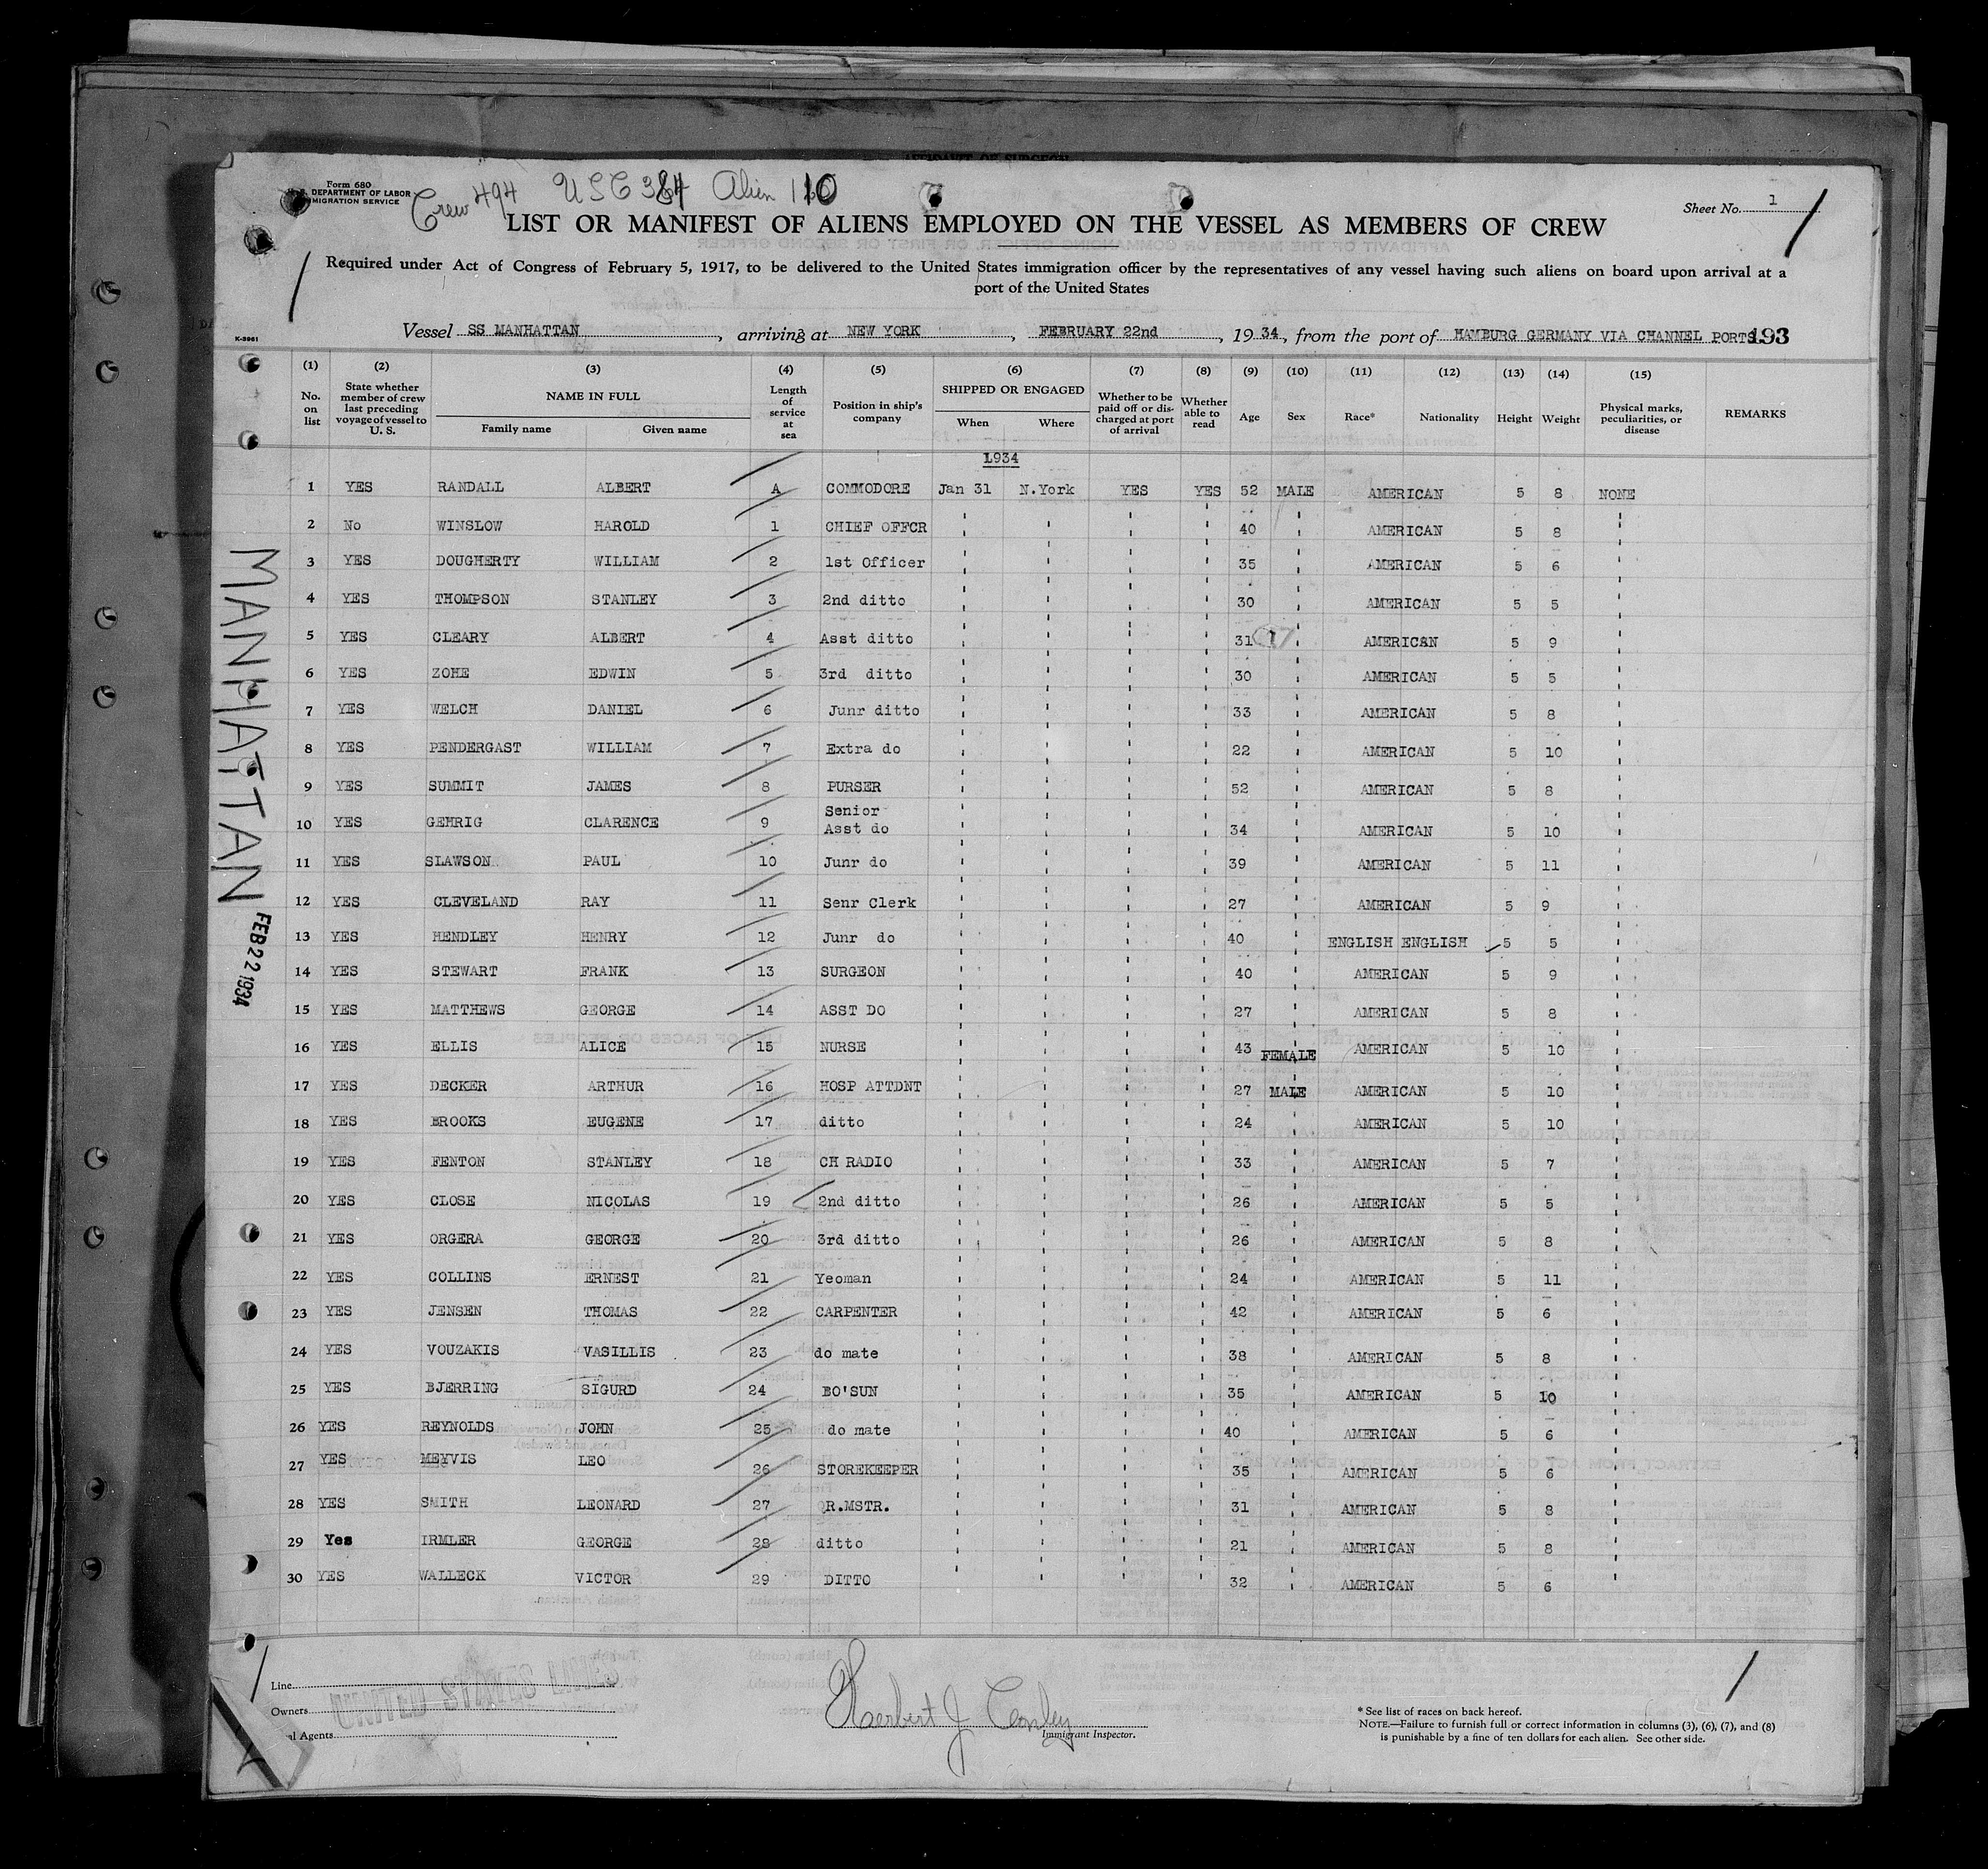 Form 680
DEPARTMENT OF LABOR
MIGRATION SERVICE
Crew 494 USC 384 Alien 110
Sheet No. 1
LIST OR MANIFEST OF ALIENS EMPLOYED ON THE VESSEL AS MEMBERS OF CREW
Required under Act of Congress of February 5, 1917, to be delivered to the United States immigration officer by the representatives of any vessel having such aliens on board upon arrival at a
port of the United States
Vessel SS MANHATTAN, arriving at NEW YORK, FEBRUARY 22nd, 1934, from the port of HAMBURG GERMANY VIA CHANNEL PORTS 193
K-3961
(1) (2) (3) (4) (5) (6) (7) (8) (9) (10) (11) (12) (13) (14) (15)
No. on list
State whether member of crew last preceding voyage of vessel to U. S.
NAME IN FULL
Family name Given name
Length of service at sea
Position in ship's company
SHIPPED OR ENGAGED
When Where
Whether to be paid off or discharged at port of arrival
Whether able to read
Age Sex Race* Nationality Height Weight
Physical marks, peculiarities, or disease
REMARKS
1934
1 YES RANDALL ALBERT A COMMODORE Jan 31 N.York YES YES 52 MALE AMERICAN 5 8 NONE
2 No WINSLOW HAROLD 1 CHIEF OFFCR 40 AMERICAN 5 8
3 YES DOUGHERTY WILLIAM 2 1st Officer 35 AMERICAN 5 6
4 YES THOMPSON STANLEY 3 2nd ditto 30 AMERICAN 5 5
5 YES CLEARY ALBERT 4 Asst ditto 31 17 AMERICAN 5 9
6 YES ZOHE EDWIN 5 3rd ditto 30 AMERICAN 5 5
7 YES WELCH DANIEL 6 Junr ditto 33 AMERICAN 5 8
8 YES PENDERGAST WILLIAM 7 Extra do 22 AMERICAN 5 10
9 YES SUMMIT JAMES 8 PURSER 52 AMERICAN 5 8
10 YES GEHRIG CLARENCE 9 Senior Asst do 34 AMERICAN 5 10
11 YES SLAWSON PAUL 10 Junr do 39 AMERICAN 5 11
12 YES CLEVELAND RAY 11 Senr Clerk 27 AMERICAN 5 9
13 YES HENDLEY HENRY 12 Junr do 40 ENGLISH ENGLISH 5 5
14 YES STEWART FRANK 13 SURGEON 40 AMERICAN 5 9
15 YES MATTHEWS GEORGE 14 ASST DO 27 AMERICAN 5 8
16 YES ELLIS ALICE 15 NURSE 43 FEMALE AMERICAN 5 10
17 YES DECKER ARTHUR 16 HOSP ATTDNT 27 MALE AMERICAN 5 10
18 YES BROOKS EUGENE 17 ditto 24 AMERICAN 5 10
19 YES FENTON STANLEY 18 CH RADIO 33 AMERICAN 5 7
20 YES CLOSE NICOLAS 19 2nd ditto 26 AMERICAN 5 5
21 YES ORGERA GEORGE 20 3rd ditto 26 AMERICAN 5 8
22 YES COLLINS ERNEST 21 Yeoman 24 AMERICAN 5 11
23 YES JENSEN THOMAS 22 CARPENTER 42 AMERICAN 5 6
24 YES VOUZAKIS VASILLIS 23 do mate 38 AMERICAN 5 8
25 YES BJERRING SIGURD 24 BO'SUN 35 AMERICAN 5 10
26 YES REYNOLDS JOHN 25 do mate 40 AMERICAN 5 6
27 YES MEYVIS LEO 26 STOREKEEPER 35 AMERICAN 5 6
28 YES SMITH LEONARD 27 QR.MSTR. 31 AMERICAN 5 8
29 Yes IRMLER GEORGE 28 ditto 21 AMERICAN 5 8
30 YES WALLECK VICTOR 29 DITTO 32 AMERICAN 5 6
MANHATTAN
FEB 22 1934
Line
Owners
al Agents
UNITED STATES LINES
Herbert J Conley
Immigrant Inspector.
* See list of races on back hereof.
NOTE.—Failure to furnish full or correct information in columns (3), (6), (7), and (8)
is punishable by a fine of ten dollars for each alien. See other side.